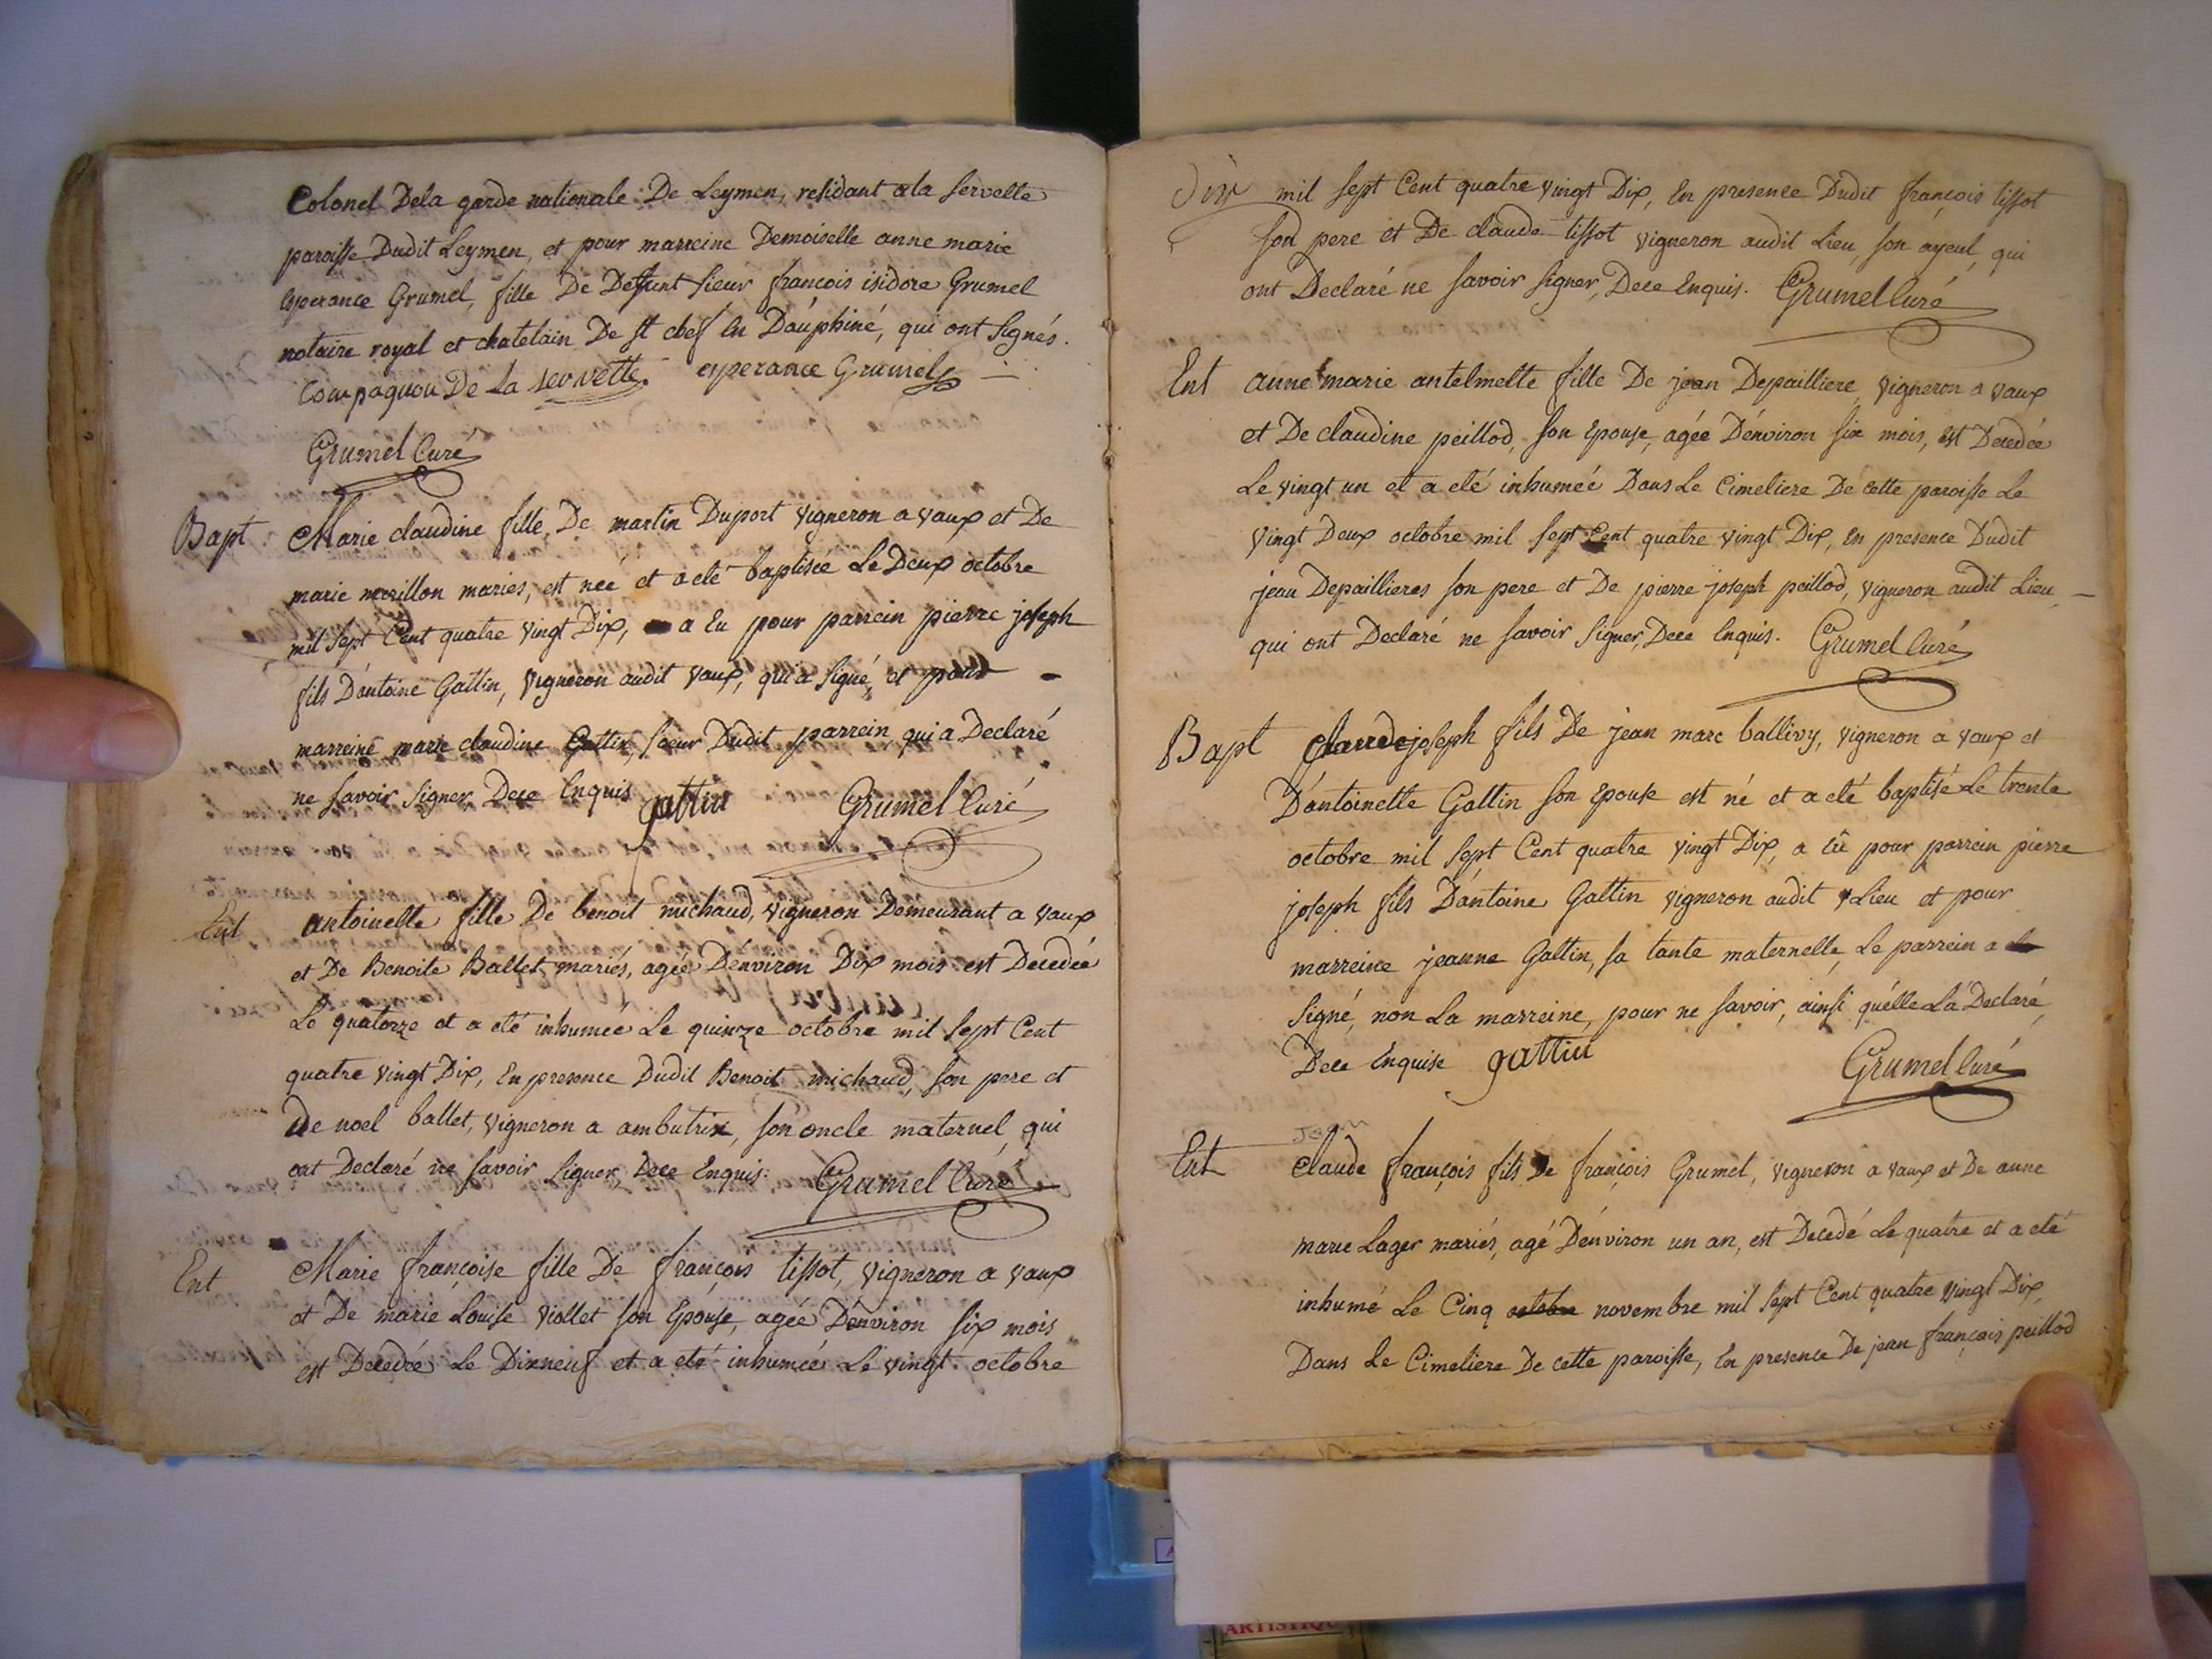 Colonel Dela garde nationale De Leymen, residant ala servette
paroisse Dudit Leymen, et pour marreine Demoiselle anne marie
esperance Grumel, fille De Deffunt sieur françois isidore Grumel
notaire royal et chatelain De st chef En Dauphiné, qui ont signés.
Compagnon De La servette. esperance Grumel
Grumel Curé
Bapt. Marie claudine fille De martin Duport vigneron a vaux et De
marie morillon mariés, est née et a eté baptisée Le Deux octobre
mil sept Cent quatre vingt Dix, a Eu pour parrein pierre joseph
fils D'antoine Gattin, vigneron audit vaux, qui a signé, et pour
marreine marie claudine Gattin, soeur Dudit parrein qui a Declaré
ne savoir signer, Dece Enquis gattin Grumel Curé
Ent antoinette fille De benoit michaud, vigneron Demeurant a vaux
et De Benoite Ballet mariés, agée D'environ Dix mois est Decedée
Le quatorze et a eté inhumée Le quinze octobre mil sept Cent
quatre vingt Dix, En presence Dudit Benoit michaud, son pere et
De noel ballet, vigneron a ambutrix, son oncle maternel, qui
ont Declaré ne savoir signer, Dece Enquis. Grumel Curé
Ent Marie françoise fille De françois tissot, vigneron a vaux
et De marie Louise viollet son Epouse, agée D'environ six mois
est Decedée Le Dixneuf et a eté inhumée Le vingt octobre
mil sept Cent quatre vingt Dix, En presence Dudit françois tissot
son pere et De claude tissot vigneron audit Lieu, son ayeul, qui
ont Declaré ne savoir signer, Dece Enquis. Grumel Curé
Ent anne marie antelmette fille De jean Depailliere, vigneron a vaux
et De claudine peillod, son Epouse, agée D'environ six mois, est Decedée
Le vingt un et a eté inhumée Dans Le Cimetiere De cette paroisse Le
vingt Deux octobre mil sept Cent quatre vingt Dix, En presence Dudit
jean Depaillieres son pere et De pierre joseph peillod, vigneron audit Lieu
qui ont Declaré ne savoir signer, Dece Enquis. Grumel Curé
Bapt Claude joseph fils De jean marc ballivy, vigneron a vaux et
D'antoinette Gattin son Epouse est né et a eté baptisé Le trente
octobre mil sept Cent quatre vingt Dix, a Eû pour parrein pierre
joseph fils D'antoine Gattin vigneron audit Lieu et pour
marreine jeanne Gattin, sa tante maternelle, Le parrein a
signé, non La marreine, pour ne savoir, ainsi qu'elle L'a Declaré,
Dece Enquise gattin Grumel Curé
Jean
Ent Claude françois fils De françois Grumel, vigneron a vaux et De anne
marie Lager mariés, agé D'environ un an, est Decedé Le quatre et a eté
inhumé Le Cinq octobre novembre mil sept Cent quatre vingt Dix,
Dans Le Cimetiere De cette paroisse, En presence De jean françois peillod
ARTISTIQU